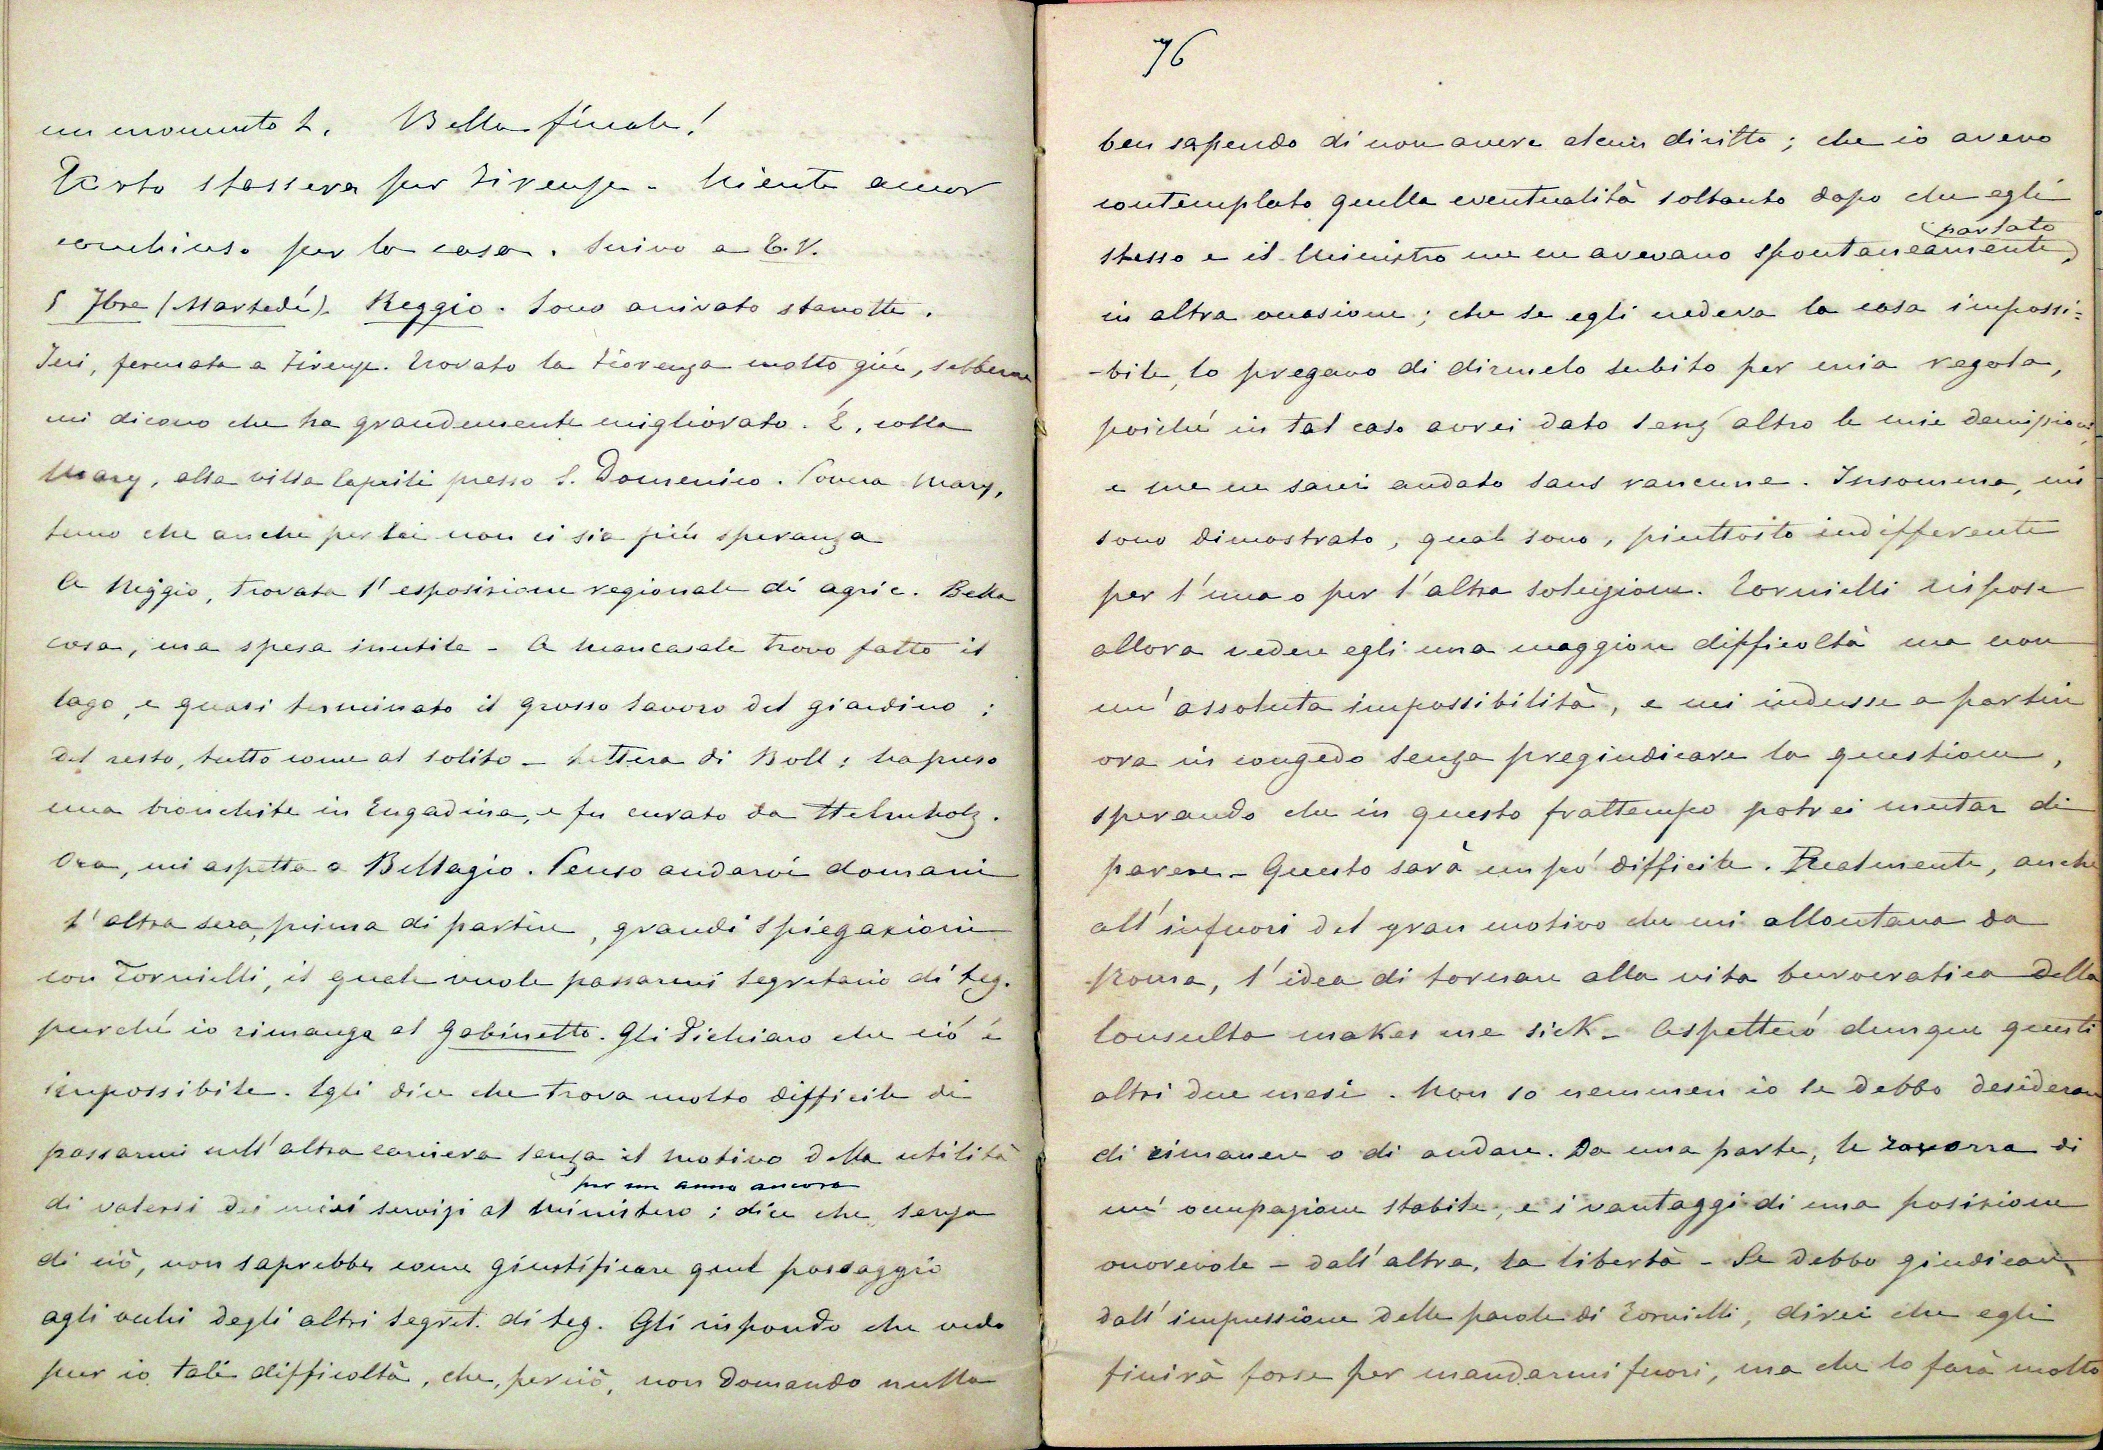 un momento L. Bella finale!
Parto stassera per Firenze. Niente ancor
conchiuso per la casa. Scrivo a E.V.
5 7bre (Martedí). Reggio. Sono arrivato stanotte.
Ieri, fermata a Firenze. Trovato la Fiorenza molto giú, sebbene
mi dicono che ha grandemente migliorato. È, colla
Mary, alla villa presso S. Domenico. Povera Mary,
temo che anche per lei non ci sia più speranza
A Reggio, trovata l'esposizione regionale di agric. Bella
cosa, ma spesa inutile - A Mancasale trovo fatto il
lago, e quasi terminato il grosso lavoro del giardino;
del resto, tutto come al solito - Lettera di Boll: ha preso
una bronchite in Engadina, e fu curato da Helmholz.
Ora, mi aspetta a Bellagio. Penso andarvi domani
L'altra sera, prima di partire, grandi spiegazioni
con Tornielli, il quale vuole passarmi segretario di leg.
purché io rimanga al Gabinetto. Gli dichiaro che ció è
impossibile. Egli dice che trova molto difficile di
passarmi nell'altra carriera senza il motivo della utilità
di valersi dei miei servizi al Ministero; dice che, senza
per un anno ancora
di ciò, non saprebbe come giustificare quel passaggio
agli occhi degli altri segret. di leg. Gli rispondo che vedo
pur io tali difficoltà, che, perciò, non domando nulla
76
ben sapendo di non avere alcun diritto; che io avevo
contemplato quella eventualità soltanto dopo che egli
stesso e il Ministro me ne avevano spontaneamente,
parlato
in altra occasione; che se egli vedeva la cosa impossi=
-bile, lo pregavo di dirmelo subito per mia regola,
poiché in tal caso avrei dato senz'altro le mie demissioni,
e me ne sarei andato sans rancune. Insomma, mi
sono dimostrato, qual sono, piuttosto indifferente
per l'una o per l'altra soluzione. Tornielli rispose
allora vedere egli una maggiore difficoltà ma non
un'assoluta impossibilità, e mi indusse a partire
ora in congedo senza pregiudicare la questione,
sperando che in questo frattempo potrei mutar di
parere - Questo sarà un pó difficile. Realmente, anche
all'infuori del gran motivo che mi allontana da
Roma, l'idea di tornare alla vita burocratica della
Consulta makes me sick - Aspetteró dunque questi
altri due mesi. Non so nemmen io se debbo desiderare
di rimanere o di andare. Da una parte, la zavorra di
un'occupazione stabile, e i vantaggi di una posizione
onorevole - dall'altra, la libertà - Se debbo giudicare
dall'impressione delle parole di Tornielli, direi che egli
finirà forse per mandarmi fuori, ma che lo farà molto